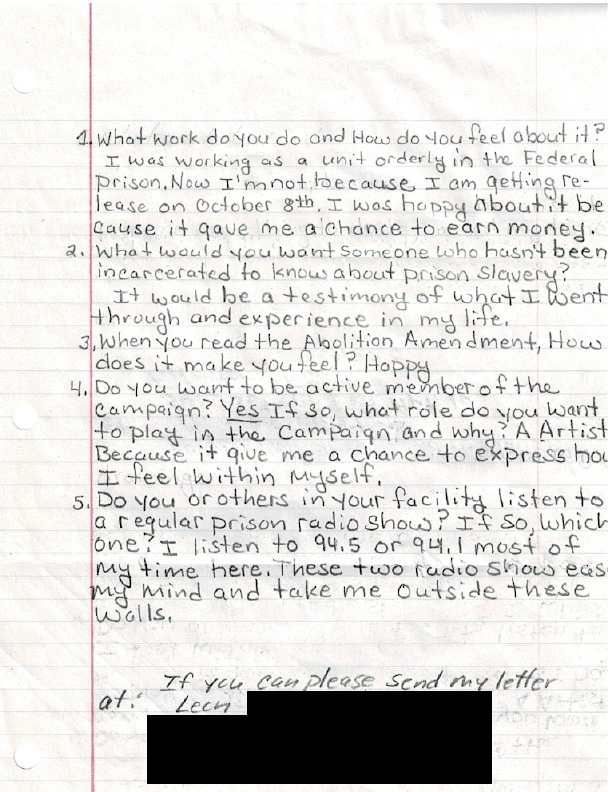 1. What work do you do and How do you feel about it?
I was working as a unit orderly in the Federal
prison. Now I'm not, because I am getting re-
lease on October 8th. I was happy about it be
cause it gave me a chance to earn money.
2. What would you want someone who hasn't been
incarcerated to know about prison slavery?
It would be a testimony of what I went
through and experience in my life.
3. When you read the Abolition Amendment, How
does it make you feel? Happy
4. Do you want to be active member of the
campaign? Yes If so, what role do you want
to play in the Campaign, and why? A Artist
Because it give me a chance to express how
I feel within Myself.
5. Do you or others in your facility listen to
a regular prison radio show? If so, which
one? I listen to 94.5 or 94.1 most of
my time here. These two radio show eas
my mind and take me outside these
walls.
If you can please send my letter
at: Leon